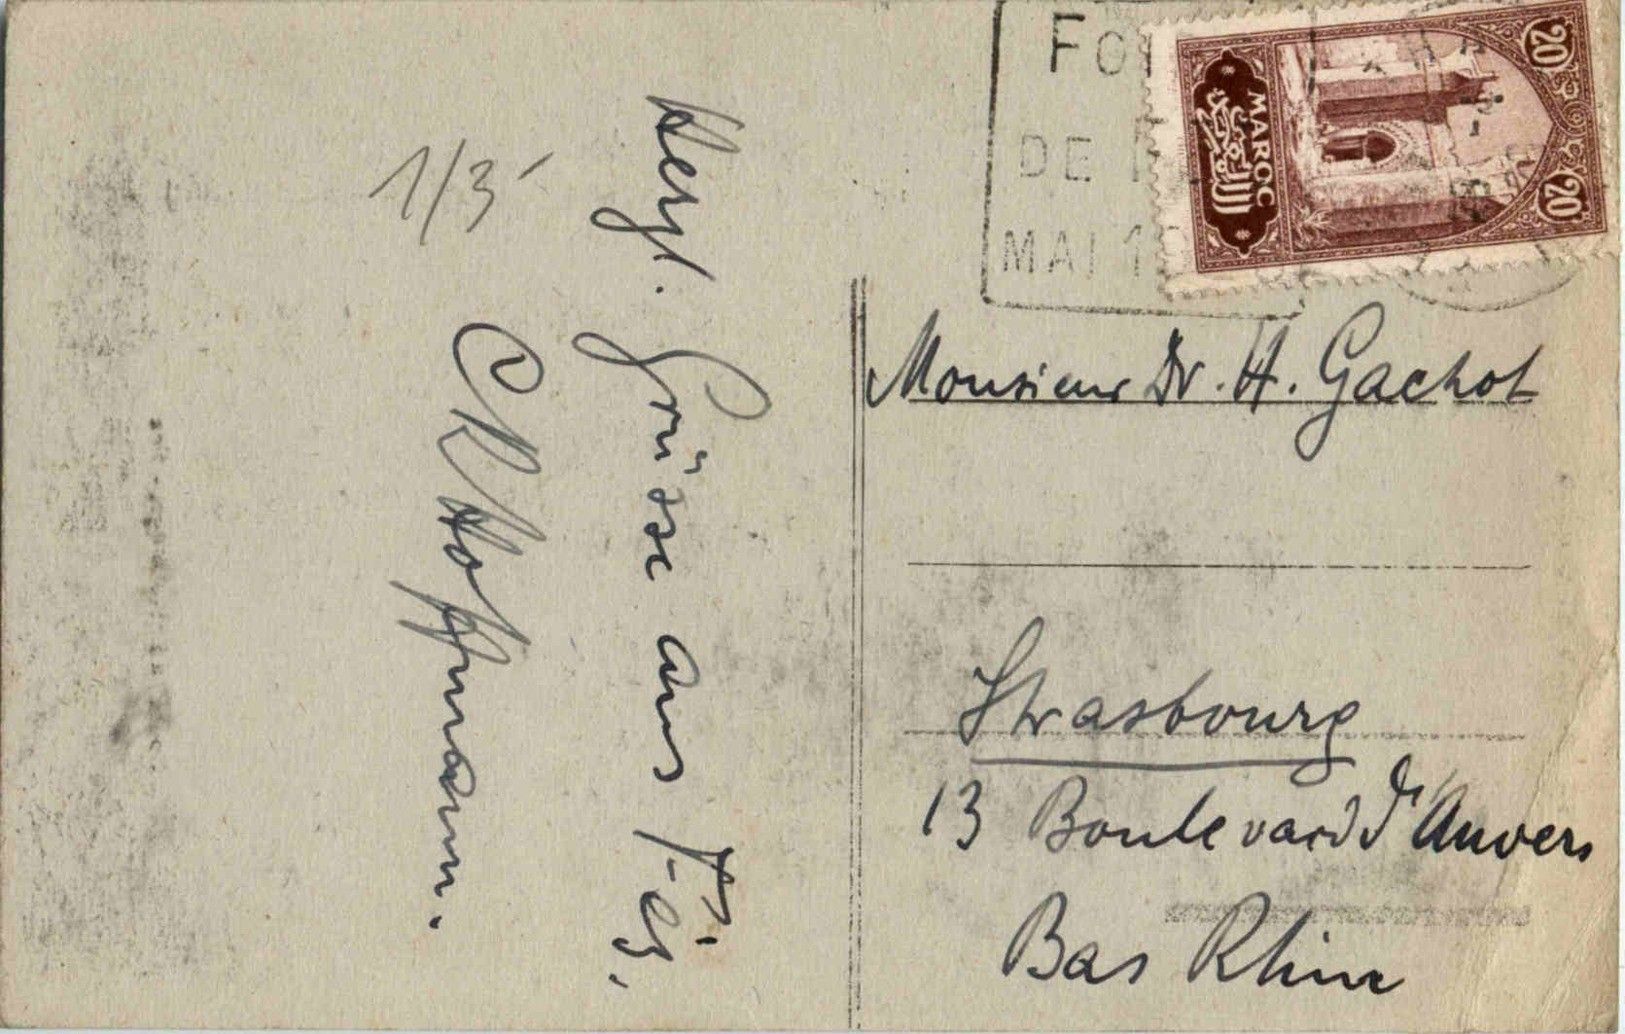 1/3
Herzl. Grüsse aus Fès.
Hoffmann.
DE
MAI
20
20
MAROC
Monsieur Dr. H. Gachot
Strasbourg
13 Boulevard d'Anvers
Bas Rhin